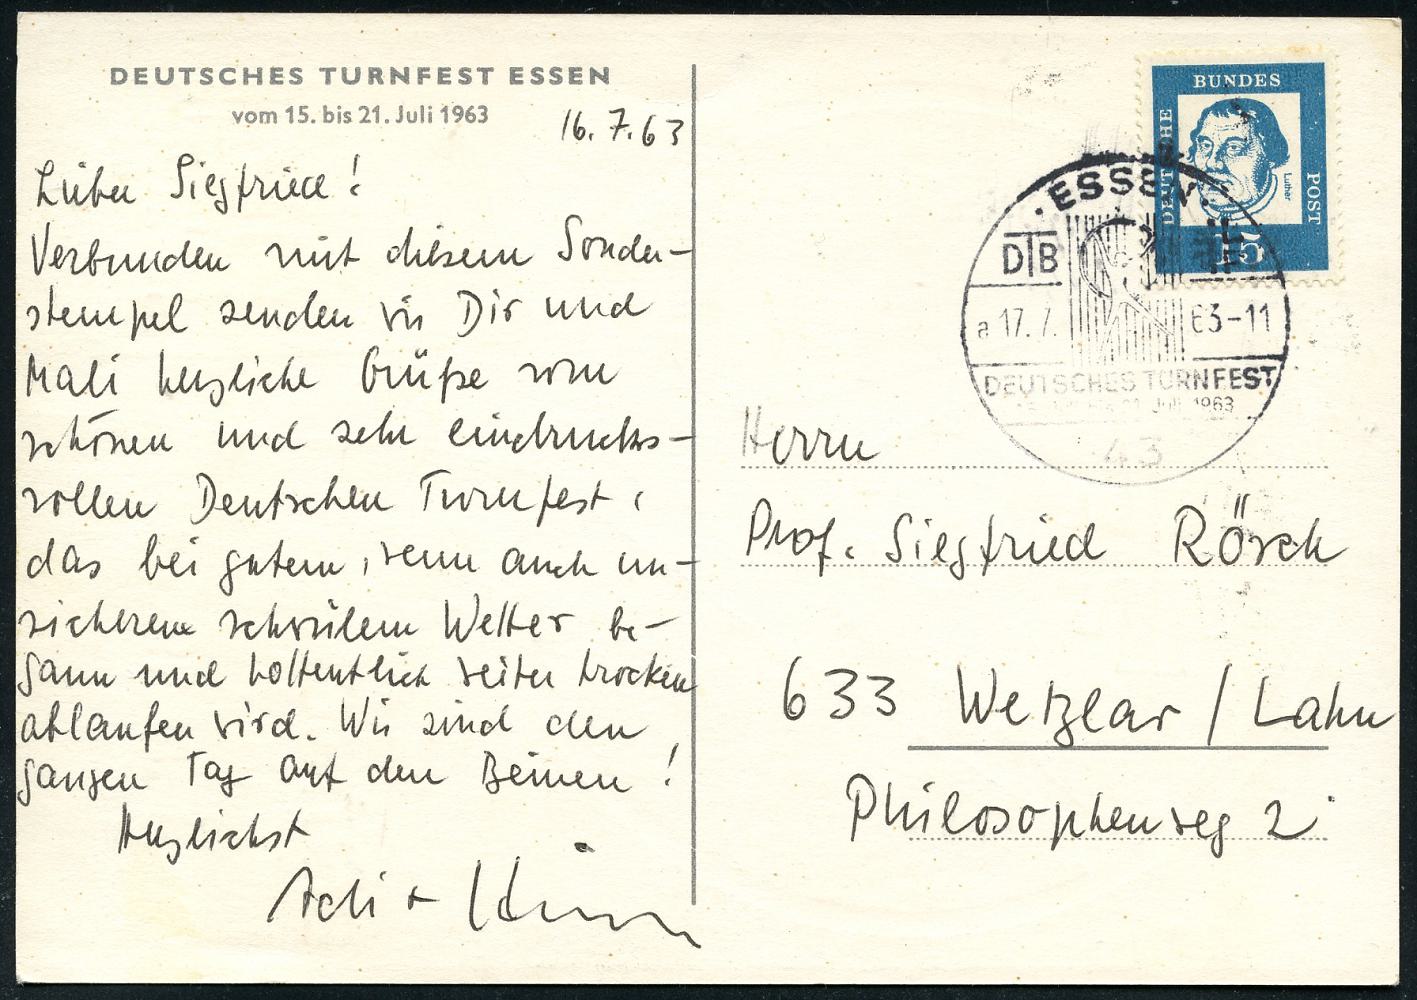 DEUTSCHES TURNFEST ESSEN
vom 15. bis 21. Juli 1963
16. 7. 63
Lieber Siegfried!
Verbunden mit diesem Sonder-
stempel senden wir Dir und
Mali herzliche Grüße vom
schönen und sehr eindrucks-
vollen Deutschen Turnfest,
das bei gutem, wenn auch un-
sicherem schwülem Wetter be-
gann und hoffentlich weiter trocken
ablaufen wird. Wir sind den
ganzen Tag auf den Beinen!
Herzlichst
Adi +
DEUTSCHE
BUNDES
POST
Luther
15
ESSEN
DTB
a 17. 7. 63-11
DEUTSCHES TURNFEST
Juli 1963
43
Herrn
Prof. Siegfried Rösch
633 Wetzlar / Lahn
Philosophenweg 2